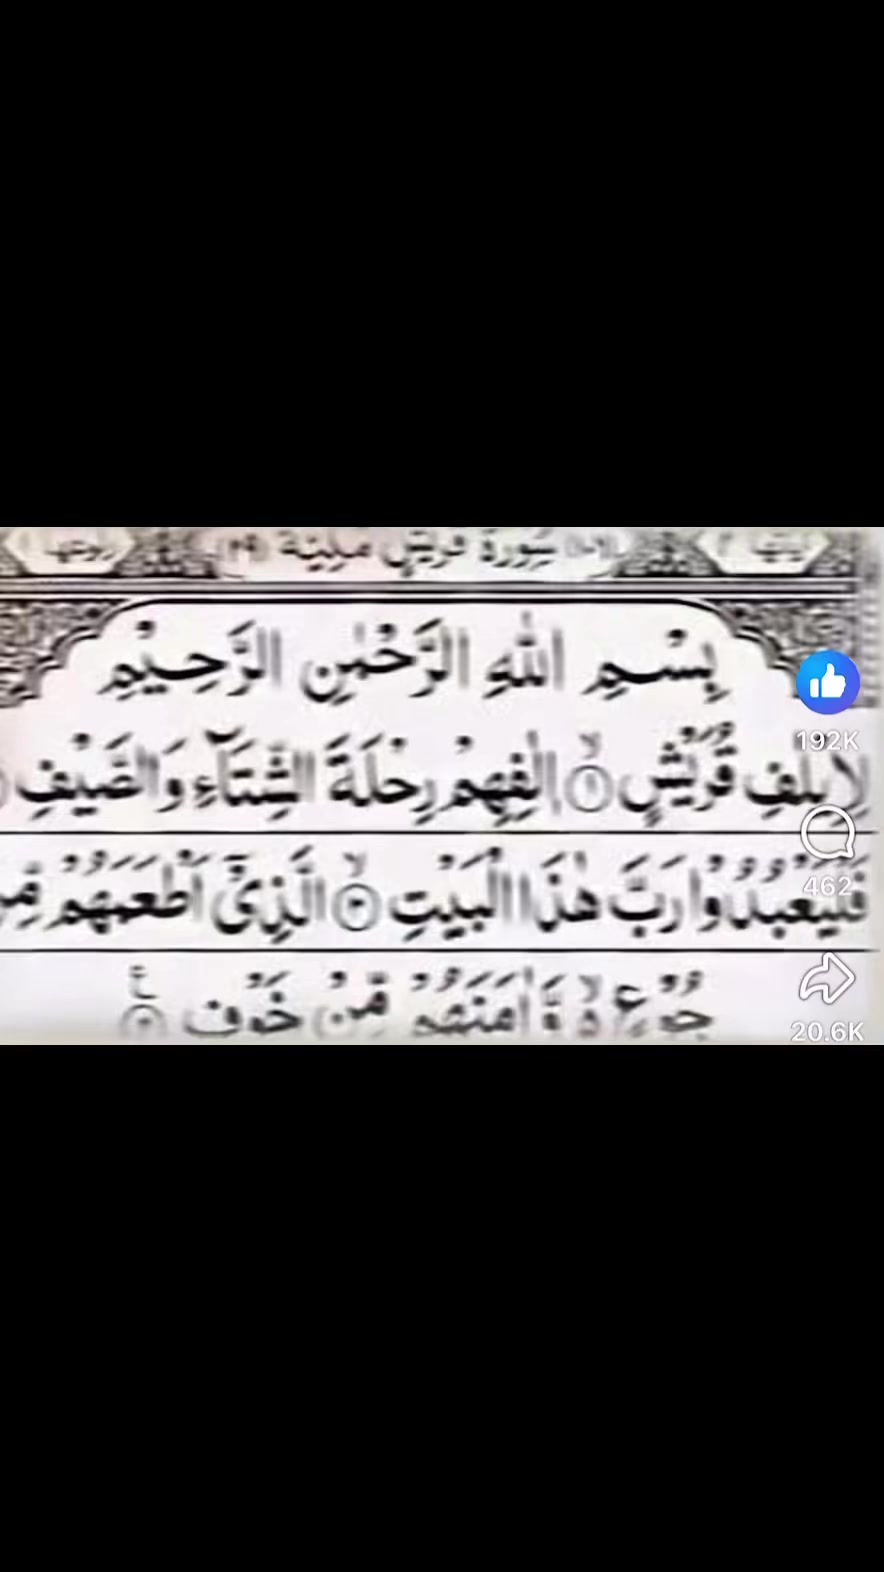 سُورَةُ قُرَيْشٍ مَكِّيَّةٌ
بِسْمِ اللّٰهِ الرَّحْمٰنِ الرَّحِيْمِ
لِاِيْلٰفِ قُرَيْشٍ ۙ۝۱ اٖلٰفِهِمْ رِحْلَةَ الشِّتَآءِ وَالصَّيْفِ
192K
فَلْيَعْبُدُوْا رَبَّ هٰذَا الْبَيْتِ ۙ۝۳ الَّذِيْۤ اَطْعَمَهُمْ مِّنْ
462
جُوْعٍ ۙ۬ وَّاٰمَنَهُمْ مِّنْ خَوْفٍ
20.6K